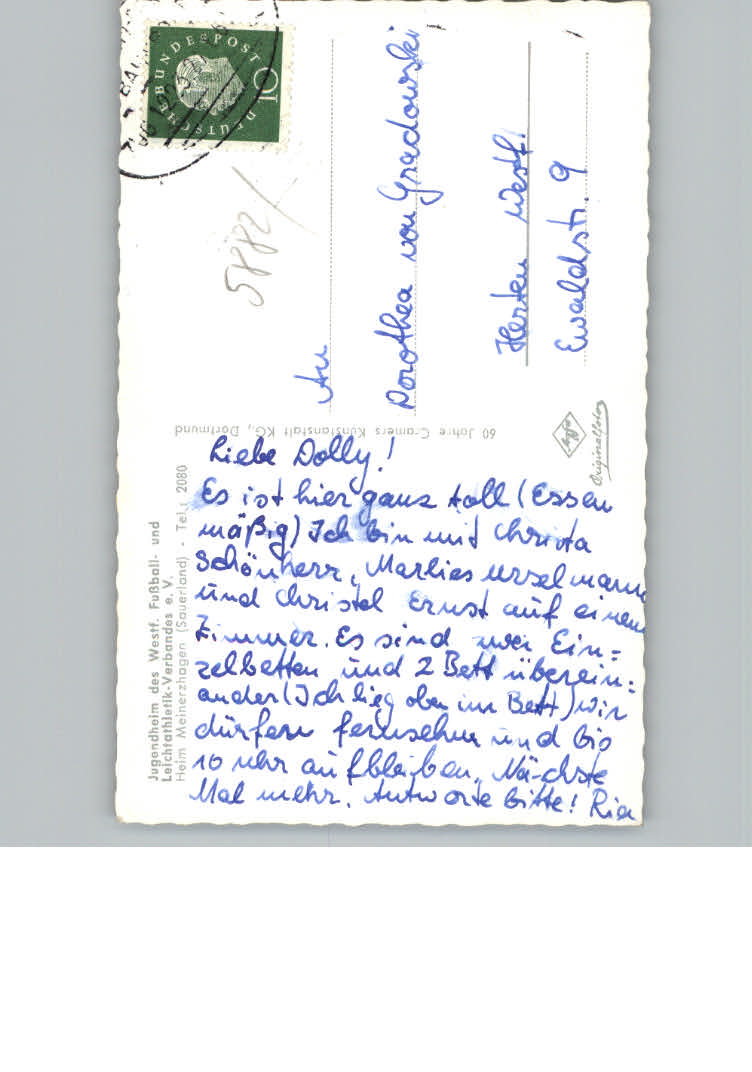 Jugendheim des Westf. Fußball- und
Leichtathletik-Verbandes e. V.
Heim Meinerzhagen (Sauerland) - Tel.: 2080
60 Jahre Cramers Kunstanstalt KG., Dortmund
Agfa
Originalfoto
DEUTSCHE BUNDESPOST
10
5882
An
Dorothea von Gradowski
Herten Westf.
Ewaldstr. 9
Liebe Dolly!
Es ist hier ganz toll (Essen
mäßig) Ich bin mit Christa
Schönherr, Marlies Urselmann
und Christel Ernst auf einem
Zimmer. Es sind zwei Ein=
zelbetten und 2 Bett überein=
ander (Ich lieg oben im Bett) wir
dürfern fernsehen und bis
10 Uhr aufbleiben. Nächste
Mal mehr. Antworte bitte! Ria